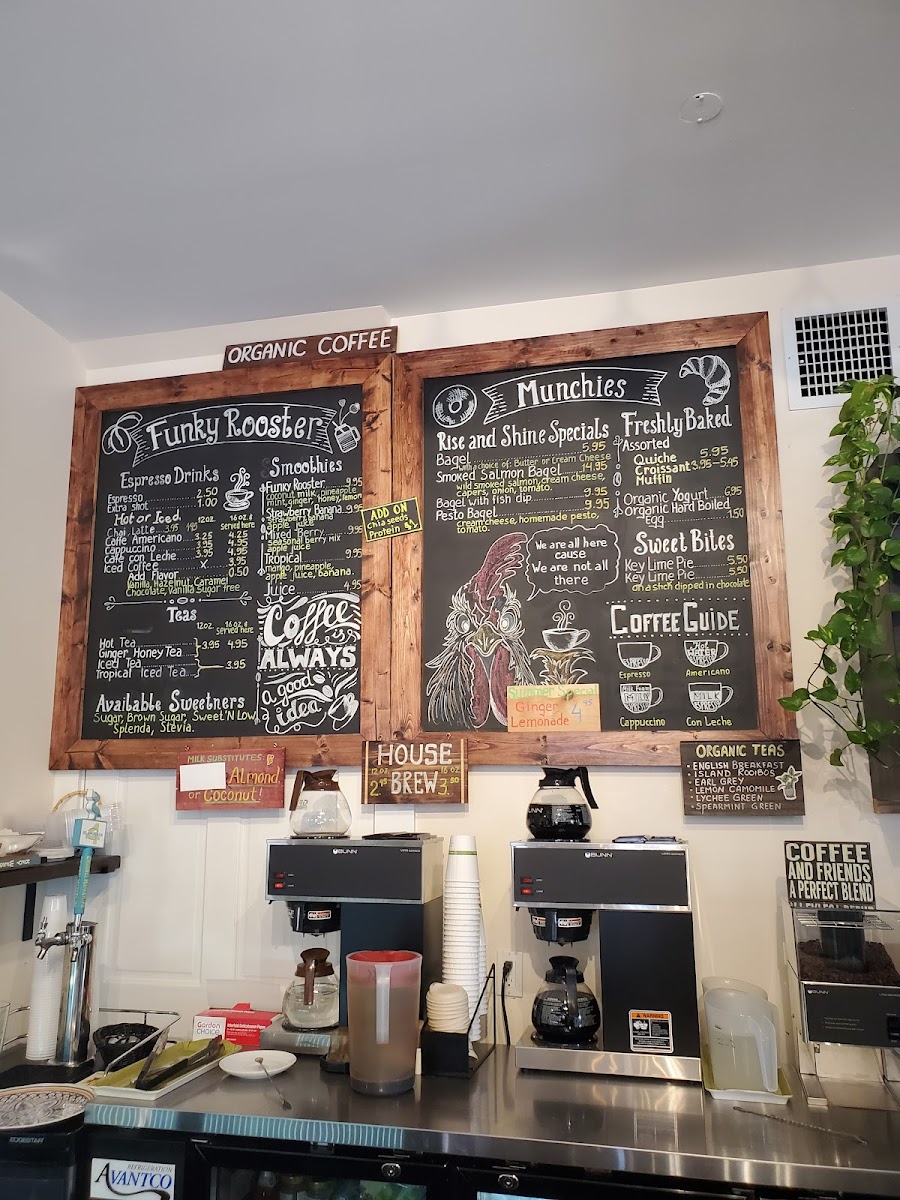 ORGANIC COFFEE
Funky Rooster
Espresso Drinks
Espresso 2.50
Extra shot 1.00
Hot or Iced 12oz. 16oz. & served here
Chai Latte 3.95 4.95
Caffe Americano 3.25 4.25
Cappuccino 3.95 4.95
Cafe con Leche 3.95 4.95
Iced Coffee X 3.95
Add Flavor 0.50
Vanilla, Hazelnut, Caramel
Chocolate, Vanilla Sugar free
Teas
12oz. 16oz. & Served here
Hot Tea
Ginger Honey Tea 3.95 4.95
Iced Tea
Tropical Iced Tea 3.95
Available Sweetners
Sugar, Brown Sugar, Sweet'N Low,
Splenda, Stevia.
Smoothies
Funky Rooster 9.95
coconut milk, pineapple,
mint, ginger, honey, lemon
Strawberry Banana 9.95
strawberry, banana
apple juice
Mixed Berry 9.95
seasonal berry mix
apple juice
Tropical 9.95
mango, pineapple,
apple juice, banana.
Juice 4.95
Coffee
is
ALWAYS
a good
idea
ADD ON
Chia seeds
Protein $1
Munchies
Rise and Shine Specials
Bagel 5.95
with a choice of: Butter or Cream Cheese
Smoked Salmon Bagel 14.95
wild smoked salmon, cream cheese,
capers, onion, tomato.
Bagel with fish dip 9.95
Pesto Bagel 9.95
cream cheese, homemade pesto,
tomato.
We are all here
cause
We are not all
there
Summer Special
Ginger
Lemonade 4.95
Freshly Baked
Assorted
Quiche 5.95
Croissant 3.95-5.45
Muffin
Organic Yogurt 6.95
Organic Hard Boiled
Egg 1.50
Sweet Bites
Key Lime Pie 5.50
Key Lime Pie 5.50
on a stick dipped in chocolate
COFFEE GUIDE
Hot
WATER
Espresso
Americano
Milk Foam
MILK
Cappuccino
Con Leche
MILK SUBSTITUTES:
Almond
or Coconut!
HOUSE
BREW
12 oz. 2.95
16 oz. 3.50
ORGANIC TEAS
• ENGLISH BREAKFAST
• ISLAND ROOIBOS
• EARL GREY
• LEMON CAMOMILE
• LYCHEE GREEN
• SPEARMINT GREEN
COFFEE
AND FRIENDS
A PERFECT BLEND
BUNN
BUNN
BUNN
BUNN
WARNING
Gordon
CHOICE
REFRIGERATION
AVANTCO